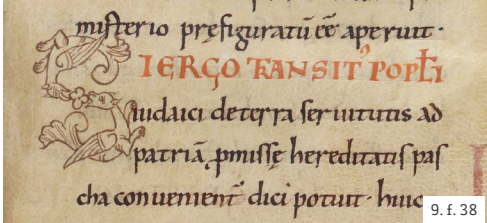 misterio pręfiguratū ee̅ aperuit·
SI ERGO TRANSITꝰ POPƚI
iudaici de terra seruitutis ad
patriā ꝓmissę hereditatis pas
cha conuenient̄ dici potuit· huic
9. f. 38